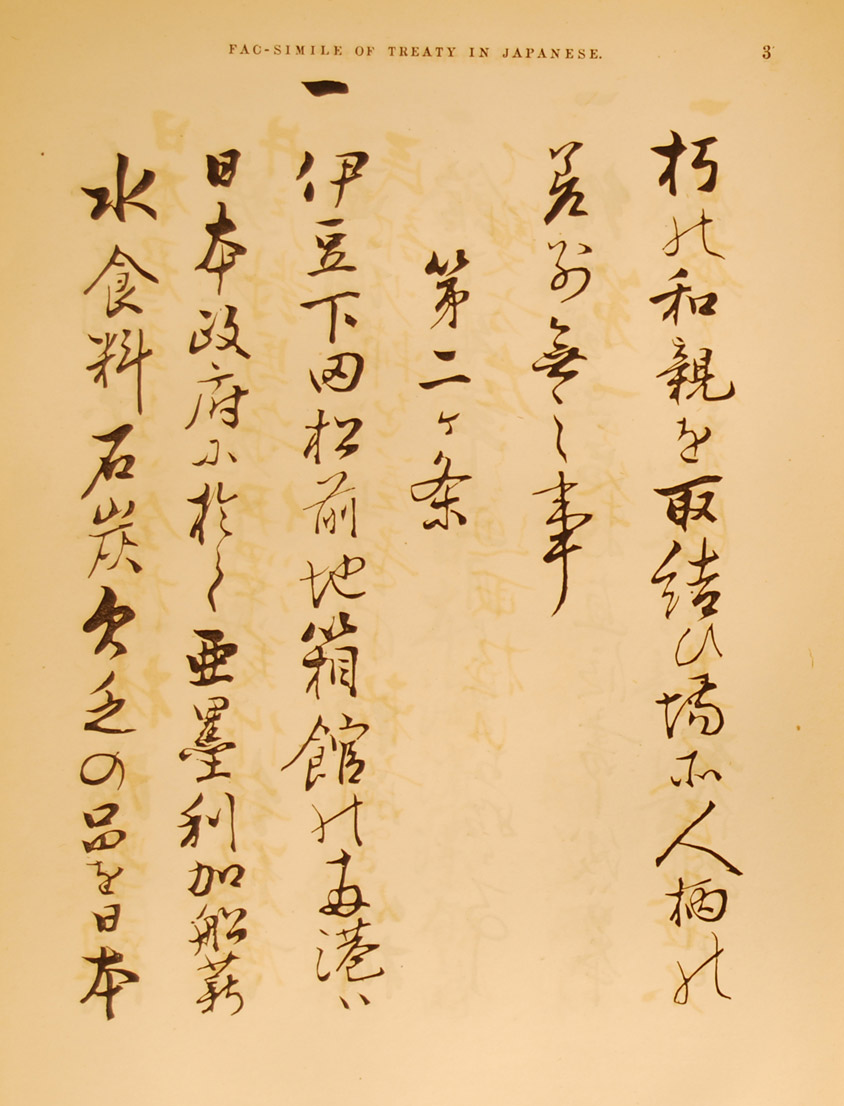 FAC-SIMILE OF TREATY IN JAPANESE.
3
朽の和親を取結ひ場所人柄の
差別無之事
第二ヶ条
一 伊豆下田松前地箱館の両港ハ
日本政府に於て亜墨利加船薪
水食料石炭欠乏の品を日本